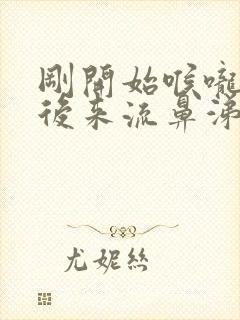 剛開始喉嚨
後來流鼻涕
尤妮絲